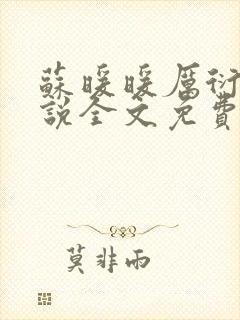 蘇暖暖厲衍
說全文免費
莫非雨